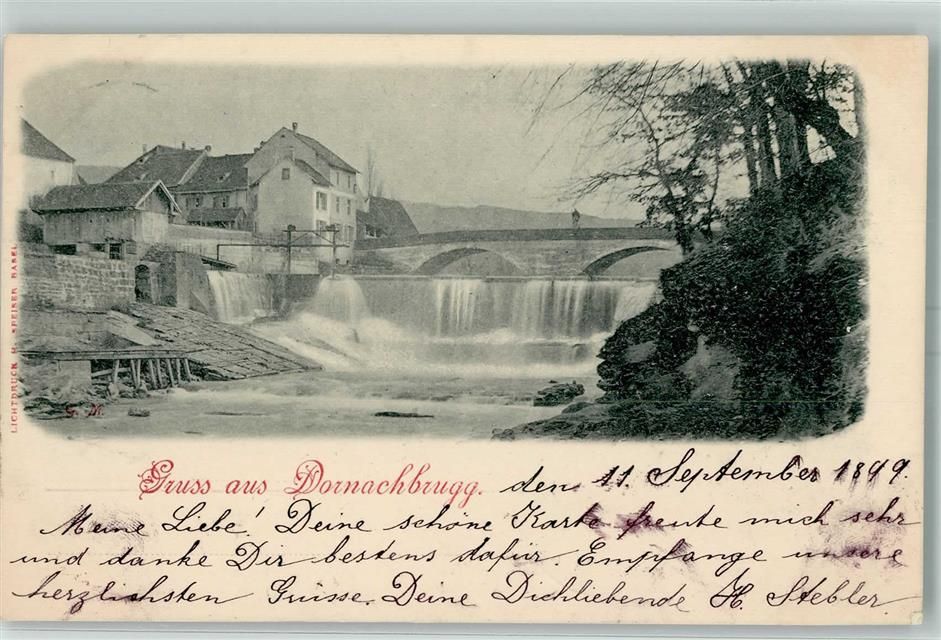 LICHTDRUCK H. SPEISER BASEL
G. M.
Gruss aus Dornachbrugg. den 11. September 1899.
Meine Liebe! Deine schöne Karte freute mich sehr
und danke Dir bestens dafür. Empfange unsere
herzlichsten Grüsse. Deine Dichliebende H. Stebler